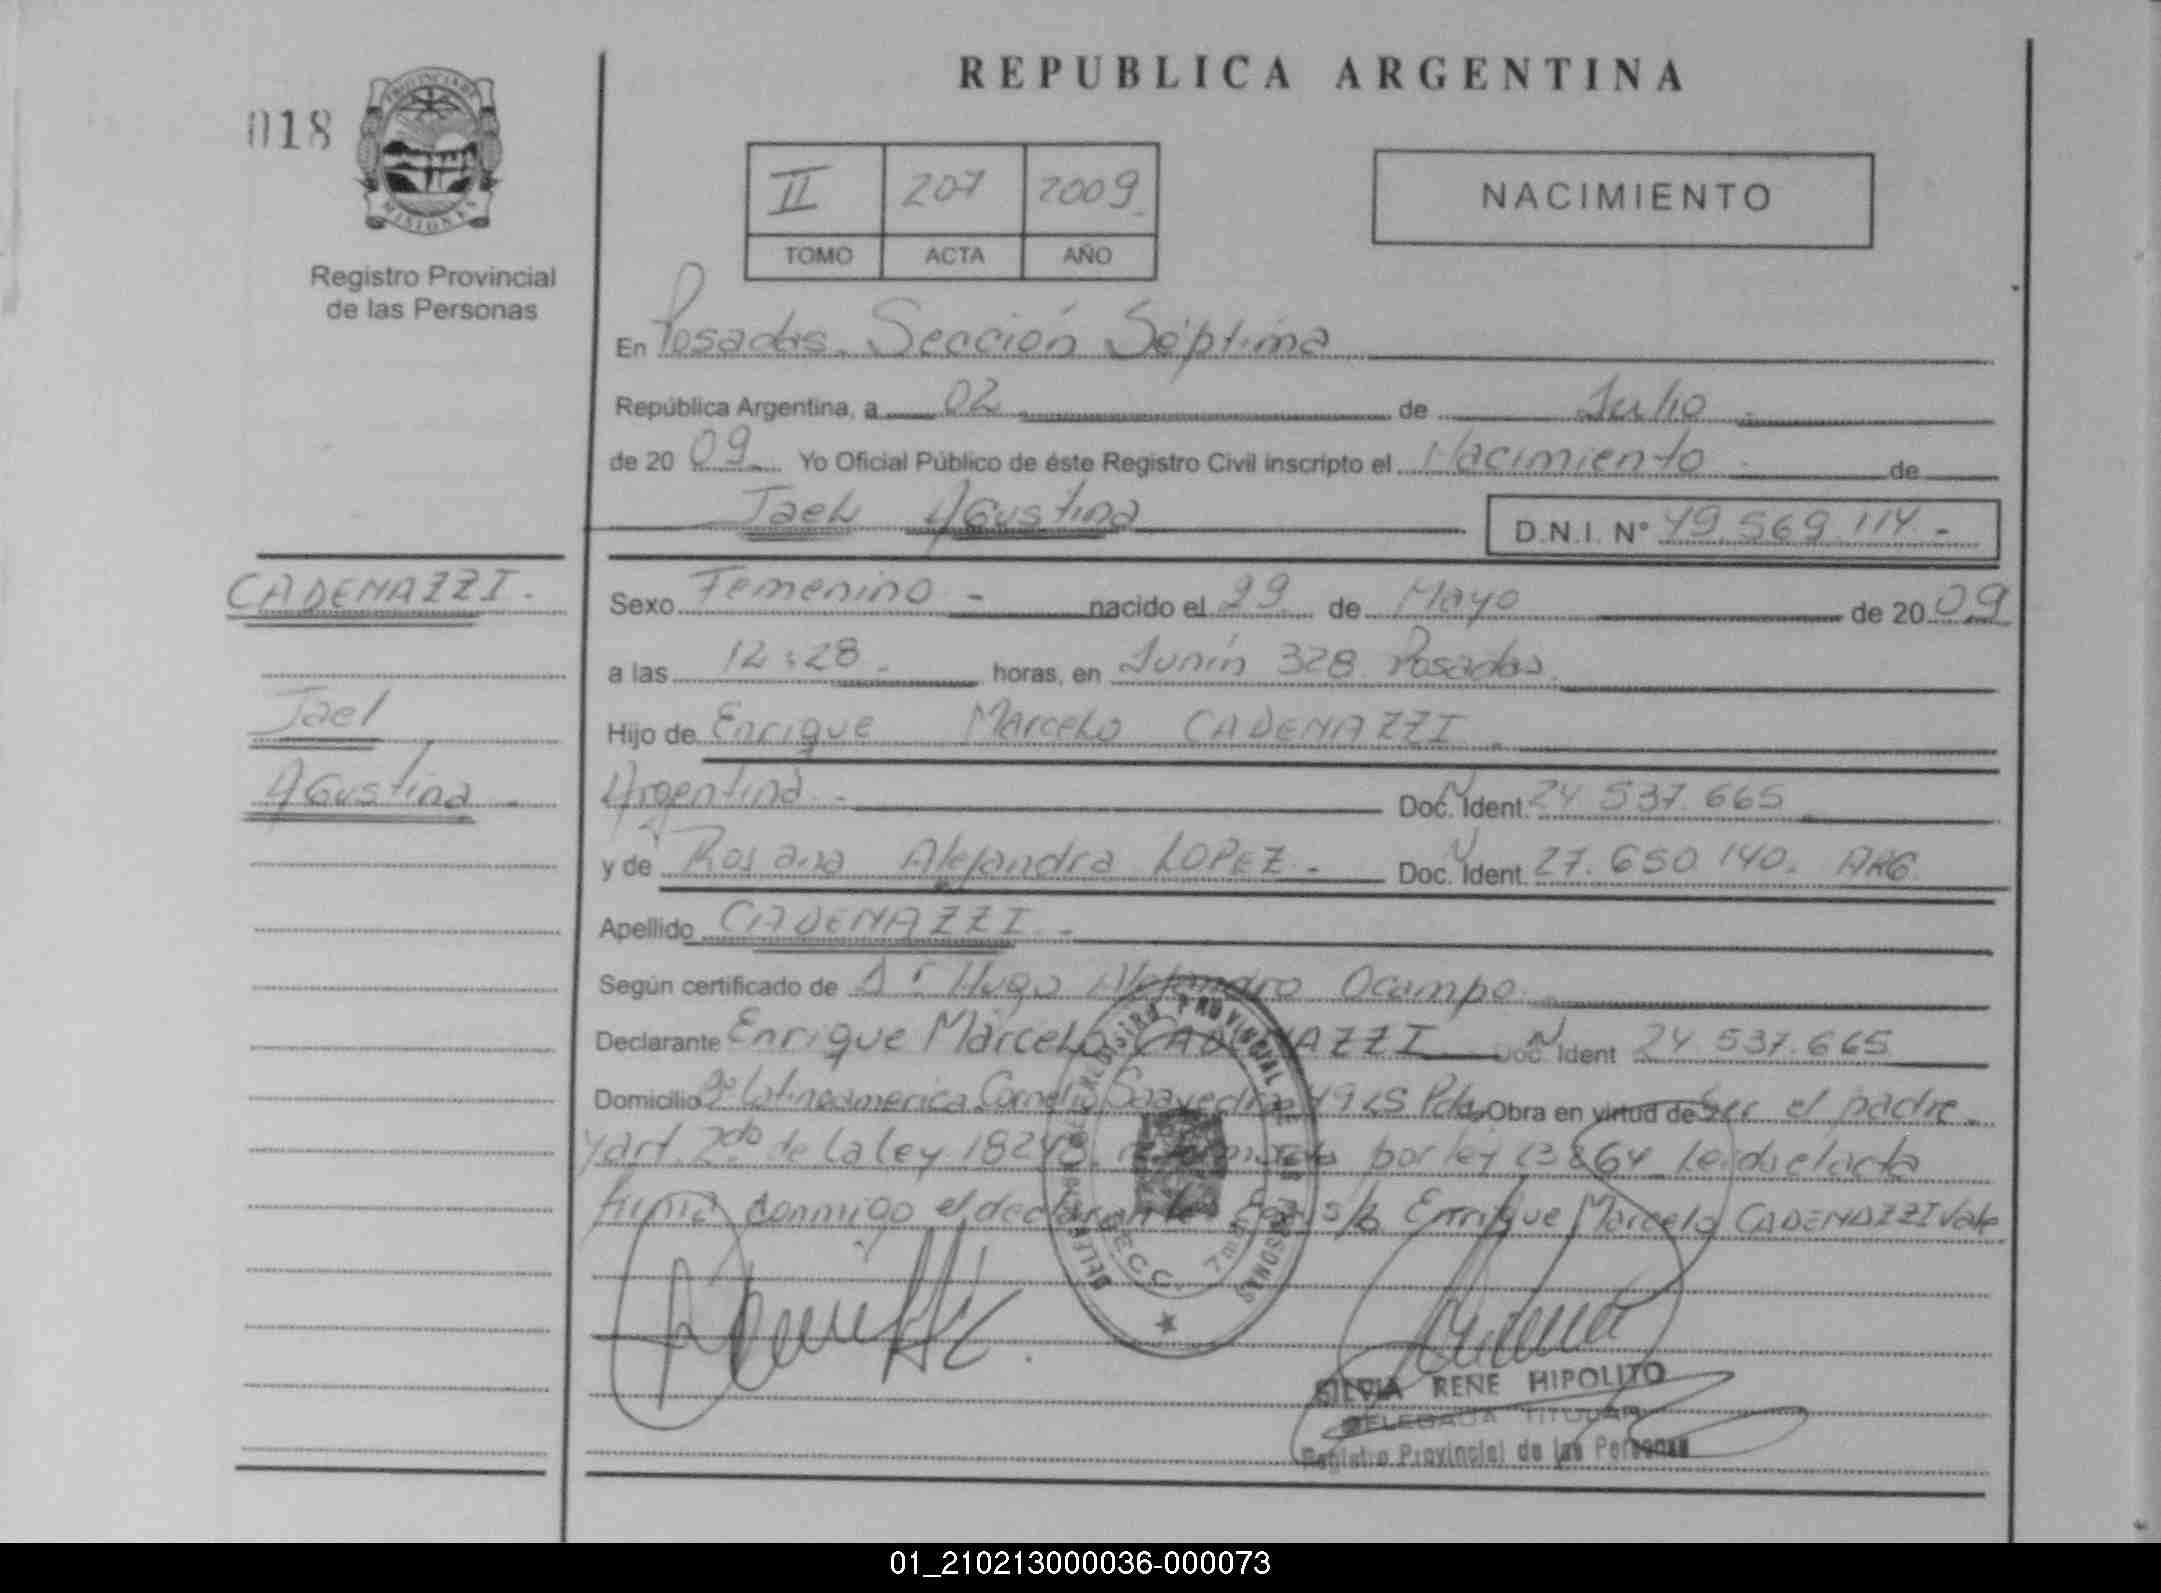 REPUBLICA ARGENTINA
018
PROVINCIA DE
MISIONES
Registro Provincial
de las Personas
II 207 2009
TOMO ACTA AÑO
NACIMIENTO
En Posadas. Sección Séptima
República Argentina, a 02 de Julio
de 20 09 Yo Oficial Público de éste Registro Civil inscripto el Nacimiento de
Jael Agustina D.N.I. Nº 49.569.114 -
CADENAZZI.
Jael
Agustina
Sexo Femenino - nacido el 29 de Mayo de 20 09
a las 12:28 horas, en Junín 328. Posadas.
Hijo de Enrique Marcelo CADENAZZI
Argentina. - Doc. Ident. 24 537.665
y de Rosana Alejandra LOPEZ. - Doc. Ident. 27.650 140. ARG
Apellido CADENAZZI. -
Según certificado de Dr Hugo Alejandro Ocampo.
Declarante Enrique Marcelo CADENAZZI Doc. Ident 24 537.665
Domicilio Latinoamerica Cornelio Saavedra Obra en virtud de Ser el padre.
y art. 2do de la ley 18248. por ley Leida el acta
firma conmigo el declarante s/b Enrique Marcelo CADENAZZI Vale
REGISTRO PROVINCIAL DE LAS PERSONAS
SECC. 7ma
SILVIA RENE HIPOLITO
DELEGADA TITULAR
Registro Provincial de las Personas
01_210213000036-000073